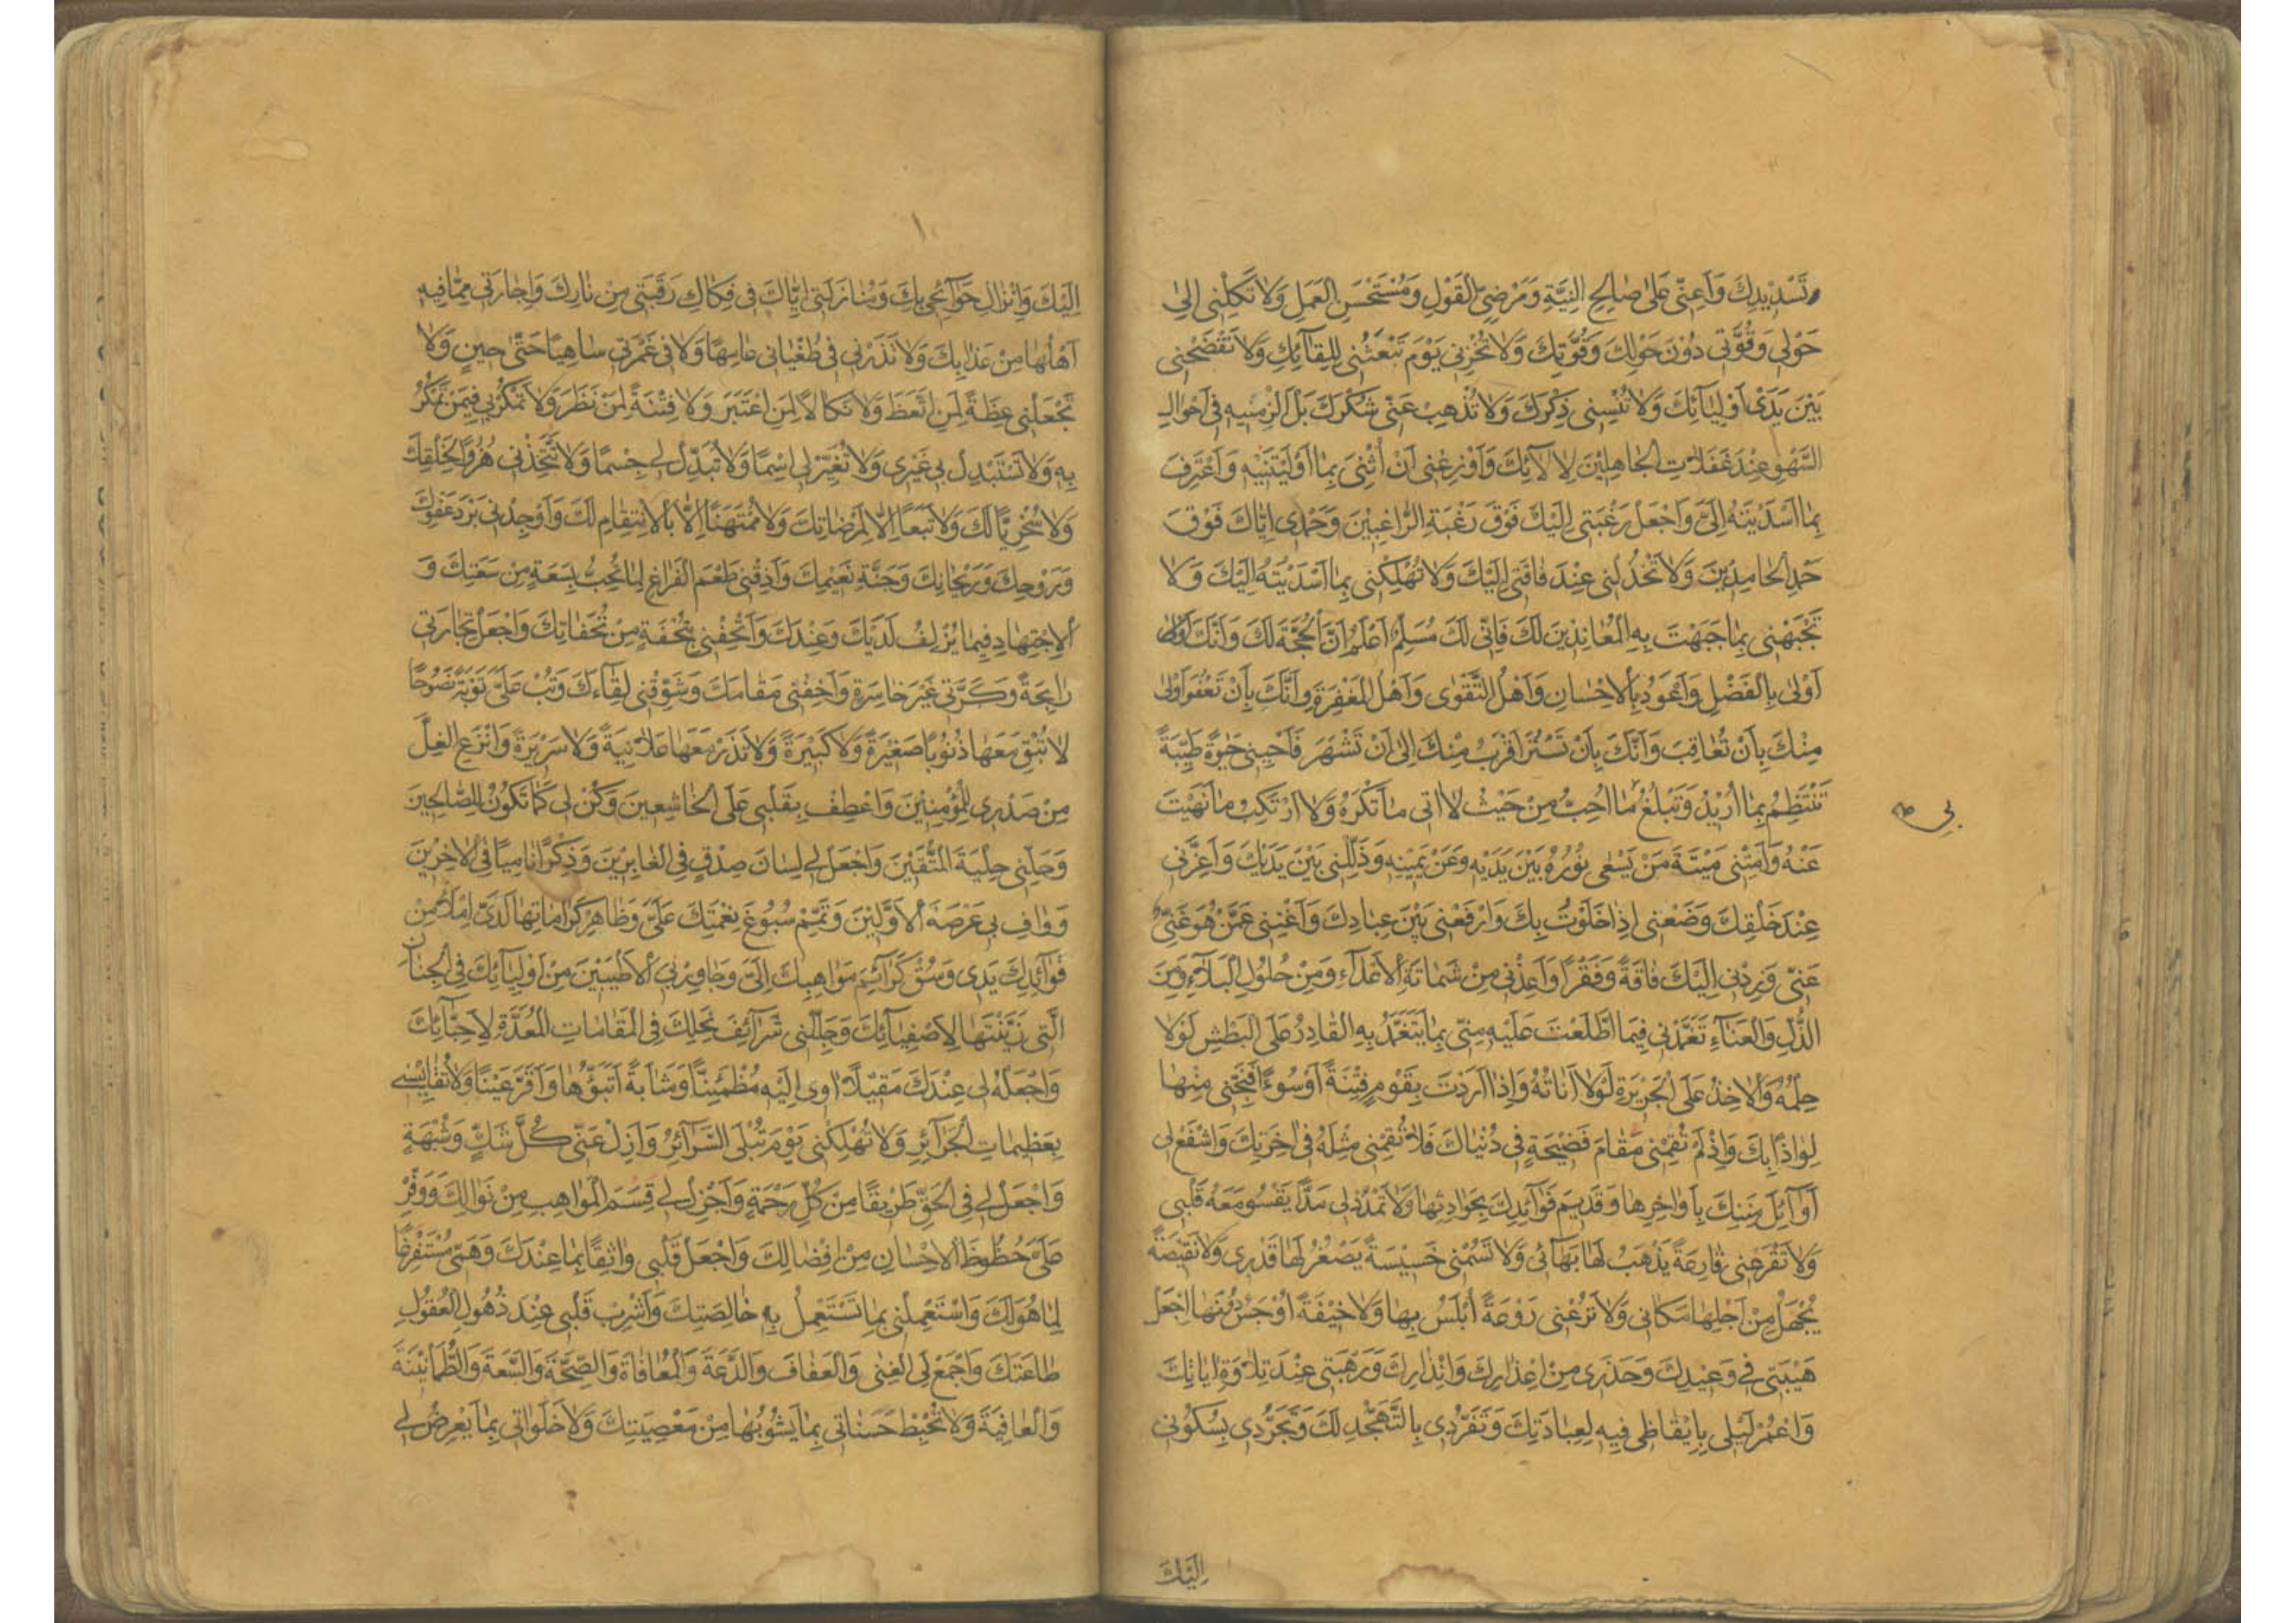 وَتَسْدِيدِكَ وَاَعِنّى عَلى صالِحِ النِيَّةِ وَمَرْضِىِّ الْقَوْلِ وَمُسْتَحْسَنِ الْعَمَلِ وَلا تَكِلْنى اِلى
حَوْلى وَقُوَّتى دُونَ حَوْلِكَ وَقُوَّتِكَ وَلا تُخْزِنى يَوْمَ تَبْعَثُنى لِلِقآئِكَ وَلا تَفْضَحْنى
بَيْنَ يَدَىْ اَوْلِيآئِكَ وَلا تُنْسِنى ذِكْرَكَ وَلا تُذْهِبْ عَنّى شُكْرَكَ بَلْ اَلْزِمْنيهِ فى اَحْوالِ
السَّهْوِ عِنْدَ غَفَلاتِ الْجاهِلينَ لِآلآئِكَ وَاَوْزِعْنى اَنْ اُثْنِىَ بِما اَوْلَيْتَنيهِ وَاَعْتَرِفَ
بِما اَسْدَيْتَهُ اِلَىَّ وَاجْعَلْ رَغْبَتى اِلَيْكَ فَوْقَ رَغْبَةِ الرّاغِبينَ وَحَمْدى اِيّاكَ فَوْقَ
حَمْدِ الْحامِدينَ وَلا تَخْذُلْنى عِنْدَ فاقَتى اِلَيْكَ وَلا تُهْلِكْنى بِما اَسْدَيْتُهُ اِلَيْكَ وَلا
تَجْبَهْنى بِما جَبَهْتَ بِهِ الْمُعانِدينَ لَكَ فَاِنّى لَكَ مُسَلِّمٌ اَعْلَمُ اَنَّ الْحُجَّةَ لَكَ وَاَنَّكَ
اَوْلى بِالْفَضْلِ وَاَعْوَدُ بِالْاِحْسانِ وَاَهْلُ التَّقْوى وَاَهْلُ الْمَغْفِرَةِ وَاَنَّكَ بِاَنْ تَعْفُوَ اَوْلى
مِنْكَ بِاَنْ تُعاقِبَ وَاَنَّكَ بِاَنْ تَسْتُرَ اَقْرَبُ مِنْكَ اِلى اَنْ تَشْهَرَ فَاَحْيِنى حَيوةً طَيِّبَةً
تَنْتَظِمُ بِما اُريدُ وَتَبْلُغُ ما اُحِبُّ مِنْ حَيْثُ لا اتى ما تَكْرَهُ وَلا اَرْتَكِبُ ما نَهَيْتَ
بى
عَنْهُ وَاَمِتْنى ميتَةَ مَنْ يَسْعى نُورُهُ بَيْنَ يَدَيْهِ وَعَنْ يَمينِهِ وَذَلِّلْنى بَيْنَ يَدَيْكَ وَاَعِزَّنى
عِنْدَ خَلْقِكَ وَضَعْنى اِذا خَلَوْتُ بِكَ وَارْفَعْنى بَيْنَ عِبادِكَ وَاَغْنِنى عَمَّنْ هُوَ غَنِىٌّ
عَنّى وَزِدْنى اِلَيْكَ فاقَةً وَفَقْرًا وَاَعِذْنى مِنْ شَماتَةِ الْاَعْدآءِ وَمِنْ حُلُولِ الْبَلآءِ وَمِنَ
الذُّلِّ وَالْعَنآءِ تَغَمَّدْنى فيمَا اطَّلَعْتَ عَلَيْهِ مِنّى بِما يَتَغَمَّدُ بِهِ الْقادِرُ عَلَى الْبَطْشِ لَوْلا
حِلْمُهُ وَالْاخِذُ عَلَى الْجَريرَةِ لَوْلا اَناتُهُ وَاِذا اَرَدْتَ بِقَوْمٍ فِتْنَةً اَوْ سُوءًا فَنَجِّنى مِنْها
لِواذًا بِكَ وَاِذْ لَمْ تُقِمْنى مَقامَ فَضيحَةٍ فى دُنْياكَ فَلا تُقِمْنى مِثْلَهُ فى اخِرَتِكَ وَاشْفَعْ لى
اَوآئِلَ مِنَنِكَ بِاَواخِرِها وَقَديمَ فَوآئِدِكَ بِحَوادِثِها وَلا تَمْدُدْ لى مَدًّا يَقْسُو مَعَهُ قَلْبى
وَلا تَقْرَعْنى قارِعَةً يَذْهَبُ لَها بَهآئى وَلا تَسُمْنى خَسيسَةً يَصْغُرُ لَها قَدْرى وَلا نَقيصَةً
يُجْهَلُ مِنْ اَجْلِها مَكانى وَلا تَرُعْنى رَوْعَةً اُبْلَسُ بِها وَلا خيفَةً اُوْجَسُ دُونَها اجْعَلْ
هَيْبَتى فى وَعيدِكَ وَحَذَرى مِنْ اِعْذارِكَ وَاِنْذارِكَ وَرَهْبَتى عِنْدَ تِلاوَةِ اياتِكَ
وَاعْمُرْ لَيْلى بِايقاظى فيهِ لِعِبادَتِكَ وَتَفَرُّدى بِالتَّهَجُّدِ لَكَ وَتَجَرُّدى بِسُكُونى
اِلَيْكَ
اِلَيْكَ وَاِنْزالِ حَوآئِجى بِكَ وَمُنازَلَتى اِيّاكَ فى فَكاكِ رَقَبَتى مِنْ نارِكَ وَاِجارَتى مِمّا فيهِ
اَهْلُها مِنْ عَذابِكَ وَلا تَذَرْنى فى طُغْيانى عامِهًا وَلا فى غَمْرَتى ساهِيًا حَتّى حينٍ وَلا
تَجْعَلْنى عِظَةً لِمَنِ اتَّعَظَ وَلا نَكالًا لِمَنِ اعْتَبَرَ وَلا فِتْنَةً لِمَنْ نَظَرَ وَلا تَمْكُرْ بى فيمَنْ تَمْكُرُ
بِهِ وَلا تَسْتَبْدِلْ بى غَيْرى وَلا تُغَيِّرْ لى اِسْمًا وَلا تُبَدِّلْ لى جِسْمًا وَلا تَتَّخِذْنى هُزُوًا لِخَلْقِكَ
وَلا سُخْرِيًّا لَكَ وَلا تَبَعًا اِلّا لِمَرْضاتِكَ وَلا مُمْتَهَنًا اِلّا بِالْاِنْتِقامِ لَكَ وَاَوْجِدْنى بَرْدَ عَفْوِكَ
وَرَوْحِكَ وَرَيْحانِكَ وَجَنَّةِ نَعيمِكَ وَاَذِقْنى طَعْمَ الْفَراغِ لِما تُحِبُّ بِسَعَةٍ مِنْ سَعَتِكَ وَ
الْاِجْتِهادِ فيما يُزْلِفُ لَدَيْكَ وَعِنْدَكَ وَاَتْحِفْنى بِتُحْفَةٍ مِنْ تُحَفاتِكَ وَاجْعَلْ تِجارَتى
رابِحَةً وَكَرَّتى غَيْرَ خاسِرَةٍ وَاَخِفْنى مَقامَكَ وَشَوِّقْنى لِقآءَكَ وَتُبْ عَلَىَّ تَوْبَةً نَصُوحًا
لا تُبْقِ مَعَها ذُنُوبًا صَغيرَةً وَلا كَبيرَةً وَلا تَذَرْ مَعَها عَلانِيَةً وَلا سَريرَةً وَانْزَعِ الْغِلَّ
مِنْ صَدْرى لِلْمُؤْمِنينَ وَاعْطِفْ بِقَلْبى عَلَى الْخاشِعينَ وَكُنْ لى كَما تَكُونُ لِلصّالِحينَ
وَحَلِّنى حِلْيَةَ الْمُتَّقينَ وَاجْعَلْ لى لِسانَ صِدْقٍ فِى الْغابِرينَ وَذِكْرًا نامِيًا فِى الْاخِرينَ
وَوافِ بى عَرْصَةَ الْاَوَّلينَ وَتَمِّمْ سُبُوغَ نِعْمَتِكَ عَلَىَّ وَظاهِرْ كَراماتِها لَدَىَّ اِمْلَأْ مِنْ
فَوآئِدِكَ يَدى وَسُقْ كَرآئِمَ مَواهِبِكَ اِلَىَّ وَجاوِرْ بِى الْاَطْيَبينَ مِنْ اَوْلِيآئِكَ فِى الْجِنانِ
الَّتى زَيَّنْتَها لِاَصْفِيآئِكَ وَجَلِّلْنى شَرآئِفَ نِحَلِكَ فِى الْمَقاماتِ الْمُعَدَّةِ لِاَحِبّآئِكَ
وَاجْعَلْ لى عِنْدَكَ مَقيلًا اوى اِلَيْهِ مُطْمَئِنًّا وَمَثابَةً اَتَبَوَّؤُها وَاَقَرُّ عَيْنًا وَلا تُقايِسْنى
بِعَظيماتِ الْجَرآئِرِ وَلا تُهْلِكْنى يَوْمَ تُبْلَى السَّرآئِرُ وَاَزِلْ عَنّى كُلَّ شَكٍّ وَشُبْهَةٍ
وَاجْعَلْ لى فِى الْحَقِّ طَريقًا مِنْ كُلِّ رَحْمَةٍ وَاَجْزِلْ لى قِسَمَ الْمَواهِبِ مِنْ نَوالِكَ وَوَفِّرْ
عَلَىَّ حُظُوظَ الْاِحْسانِ مِنْ اِفْضالِكَ وَاجْعَلْ قَلْبى واثِقًا بِما عِنْدَكَ وَهَمّى مُسْتَفْرِغًا
لِما هُوَ لَكَ وَاسْتَعْمِلْنى بِما تَسْتَعْمِلُ بِهِ خالِصَتِكَ وَاَشْرِبْ قَلْبى عِنْدَ ذُهُولِ الْعُقُولِ
طاعَتَكَ وَاجْمَعْ لِى الْغِنى وَالْعَفافَ وَالدَّعَةَ وَالْمُعافاةَ وَالصِّحَّةَ وَالسَّعَةَ وَالطُّمَأْنينَةَ
وَالْعافِيَةَ وَلا تُحْبِطْ حَسَناتى بِما يَشُوبُها مِنْ مَعْصِيَتِكَ وَلا خَلَواتى بِما يَعْرِضُ لى